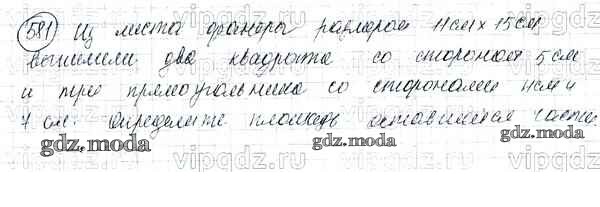 581 Из листа фанеры размером 11см х 15см
выпилили два квадрата со стороной 5 см
и три прямоугольника со сторонами 4см и
7 см. Определите площадь оставшейся части.
gdz.moda gdz.moda gdz.moda
vipgdz.ru vipgdz.ru